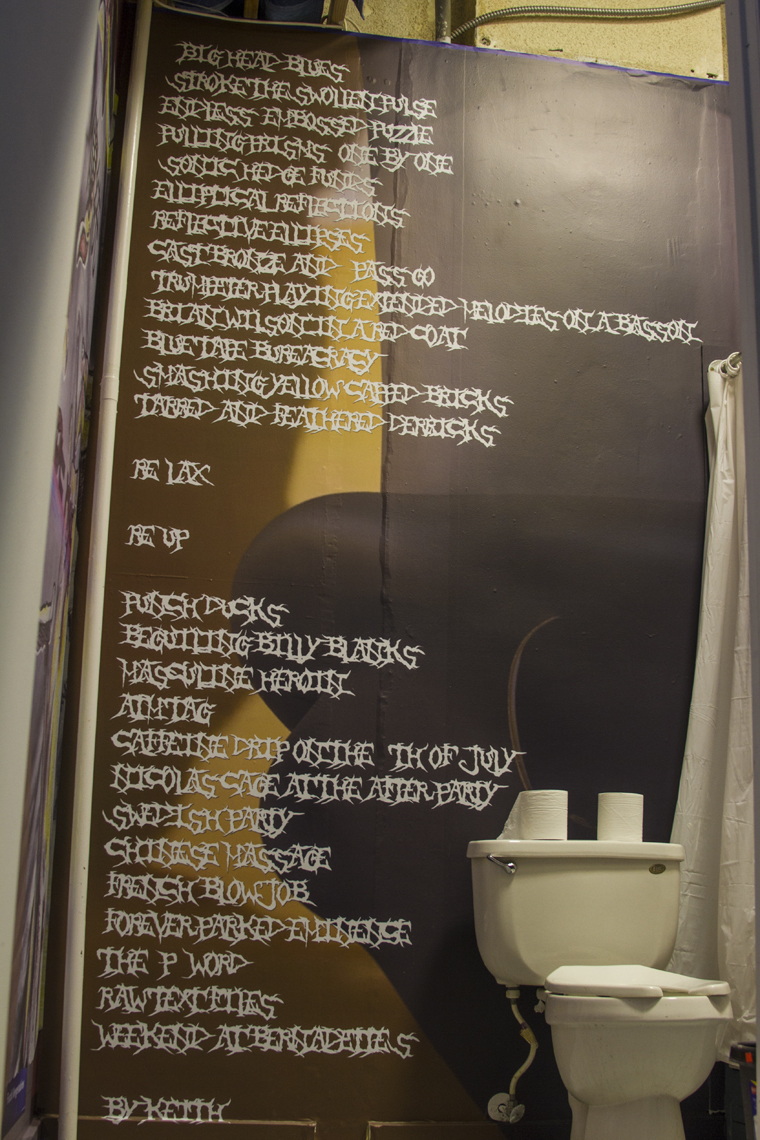 BIG HEAD BLUES
STROKE THE SWOLLEN PULSE
ENDLESS EMBOSSED PUZZLE
PULLING IRISHS ONE BY ONE
SONIC HEDGE FUNDS
ELLIPTICAL REFLECTIONS
REFLECTIVE ELLIPSES
CAST BRONZE AND PASS GO
TRUMPETER PLAYING EXTENDED MELODIES ON A BASSON
BRIAN WILSON IN A RED COAT
BLUE TAPE BUREACRACY
SMASHING YELLOW CAPPED BRICKS
TARRED AND FEATHERED DERRICKS
RE LAX
RE UP
PUNCH DUCKS
BEGUILING BILLY BLANKS
MASCULINE HEROIN
AIM TAG
CAFFEINE DRIP ON THE TH OF JULY
NICOLAS CAGE AT THE AFTER PARTY
SWEDISH PARTY
CHINESE MASSAGE
FRENCH BLOWJOB
FOREVER PARKED EMINENCE
THE P WORD
RAW TEXT FILES
WEEKEND AT BERNADETTE S
BY KEITH